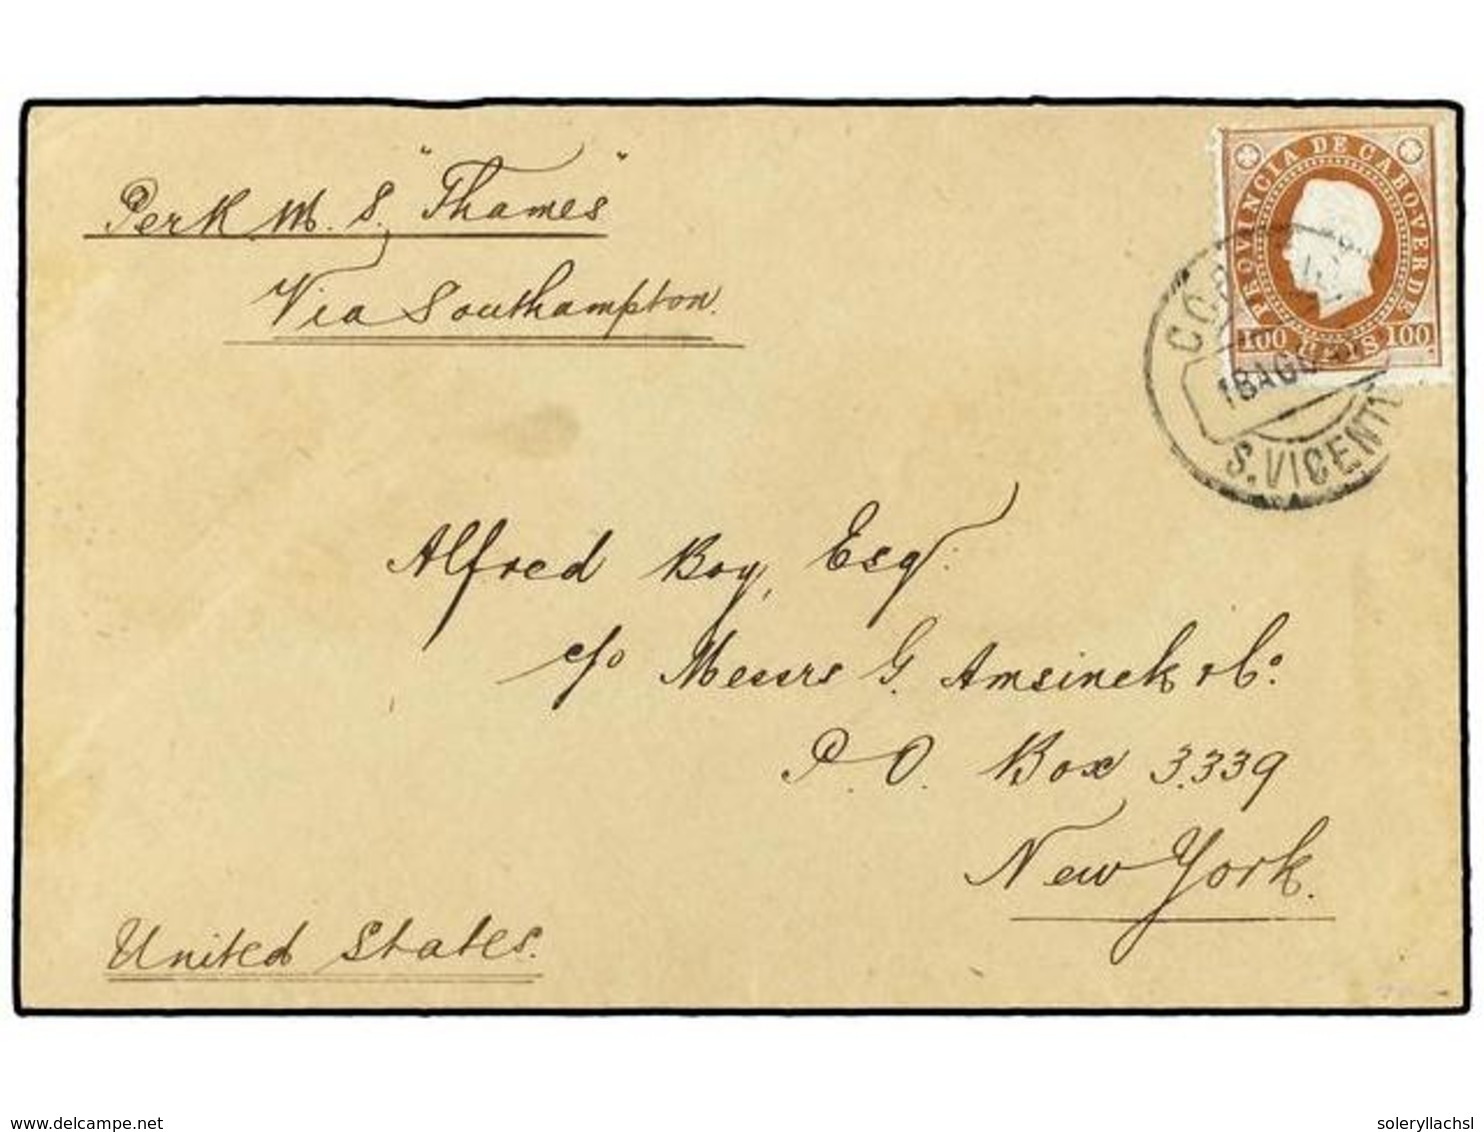 Per R. M. S. "Thames"
Via Southampton.
PROVINCIA DE CABO VERDE
100 REIS 100
18 AGO
S. VICENTE
Alfred Boy, Esqr.
c/o Messrs G. Amsinck & Co.
P. O. Box 3.339
New York.
United States.
www.delcampe.net
soleryllachsl